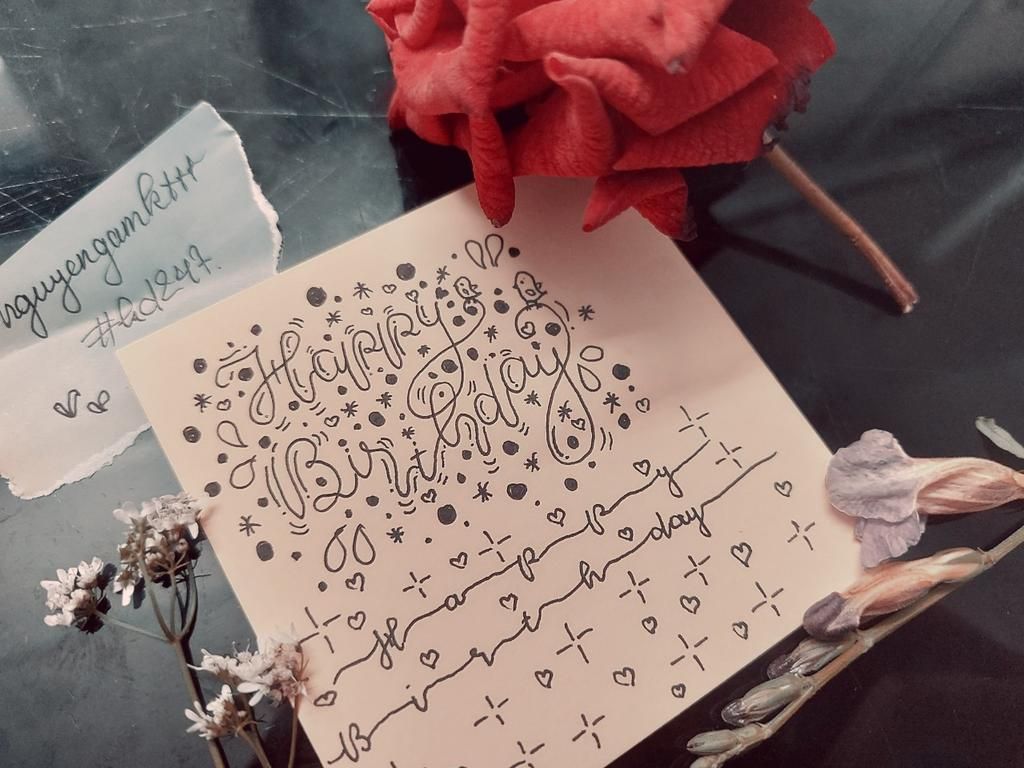 nguyengamkttt
#hd247.
Happy
Birthday
Happy
Birthday